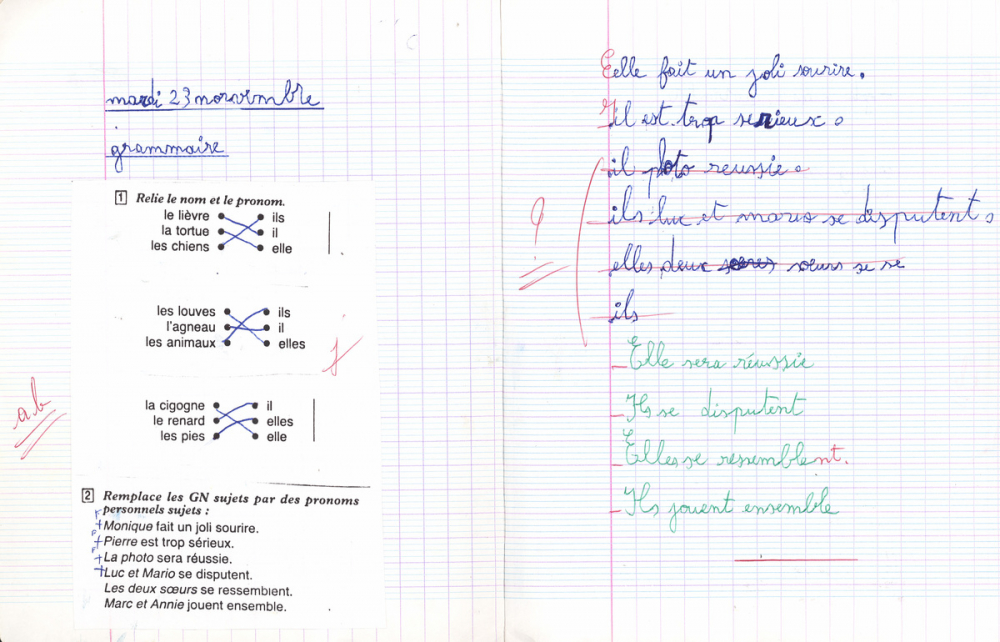 mardi 23 novembre
grammaire
1 Relie le nom et le pronom.
le lièvre ils
la tortue il
les chiens elle
les louves ils
l'agneau il
les animaux elles
la cigogne il
le renard elles
les pies elle
ab
2 Remplace les GN sujets par des pronoms
personnels sujets :
Monique fait un joli sourire.
Pierre est trop sérieux.
La photo sera réussie.
Luc et Mario se disputent.
Les deux sœurs se ressemblent.
Marc et Annie jouent ensemble.
Eelle fait un joli sourire.
il est trop serieux.
il photo reussie.
ils luc et mario se disputent.
elles deux sœurs se se
ils
Elle sera réussie
Ils se disputent
Elles se ressemblent.
Ils jouent ensemble